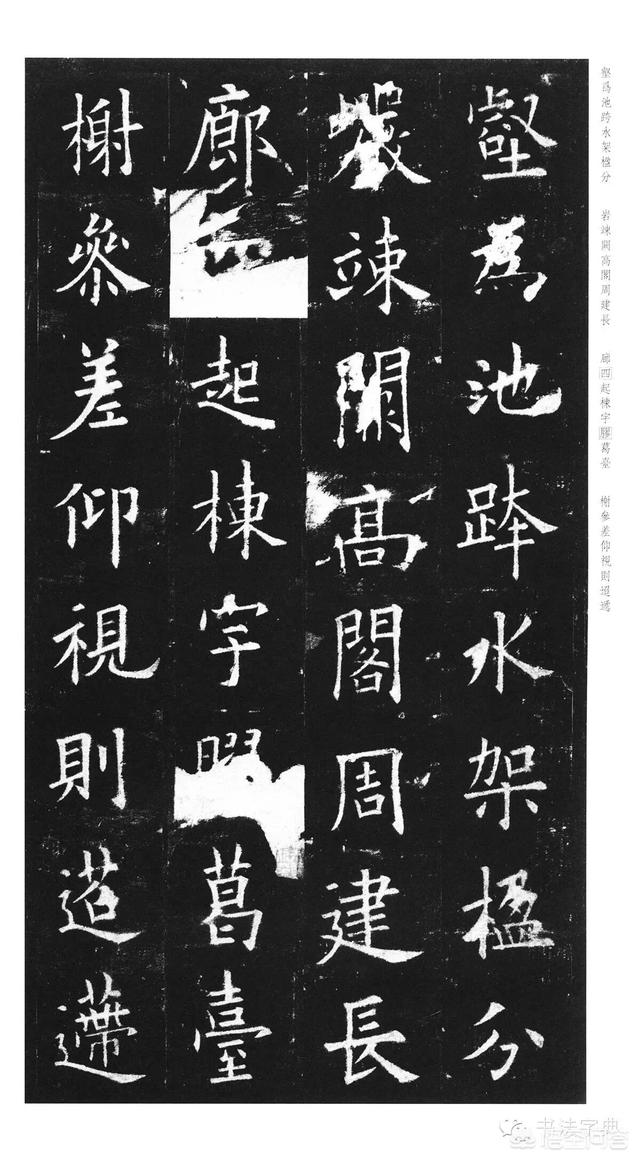 壑爲池跨水架楹分 岩竦闕高閣周建長 廊四起棟宇膠葛臺 榭參差仰視則迢遞
壑為池跨水架楹分
巖竦闕高閣周建長
廊起棟宇葛臺
榭參差仰視則迢遰
书法字典
悟空问答